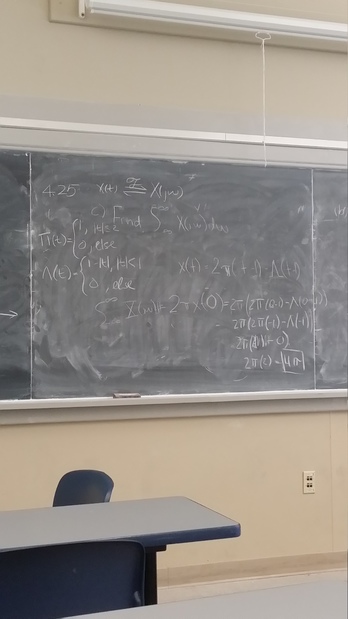 4.25 x(t) ⇌ X(jω)
c) Find ∫ X(jω)dω
Π(t)={1, |t|≤
0, else
Λ(t)={1-|t|, |t|<1
0, else
x(t)=2π(t-1)-Λ(t-1)
∫ X(jω)= 2πx(0)=2π(2π(0-1)-Λ(0-1))
= 2π(2π(-1)-Λ(-1))
0)
2π(2)=4π